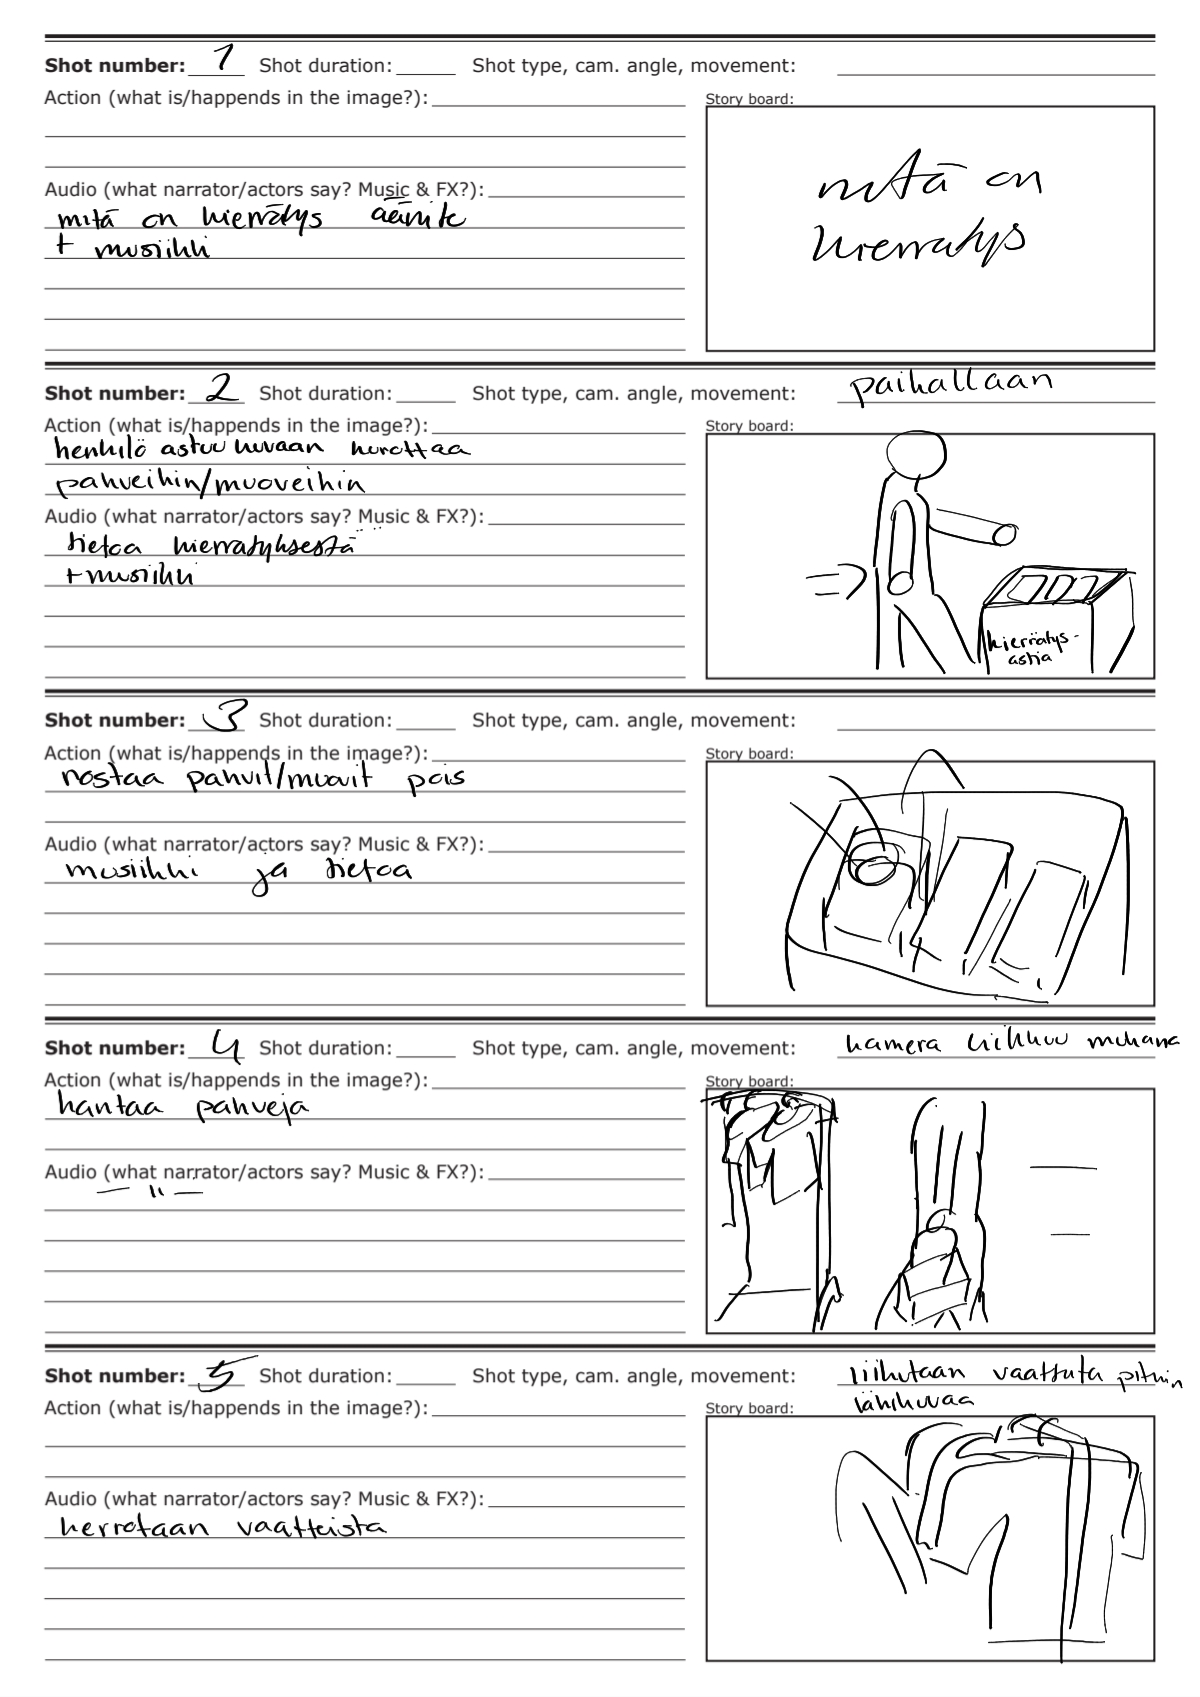 Shot number: 1 Shot duration: Shot type, cam. angle, movement:
Action (what is/happends in the image?):
Story board:
mitä on
kierrätys
Audio (what narrator/actors say? Music & FX?):
mitä on kierrätys äänite
+ musiikki
Shot number: 2 Shot duration: Shot type, cam. angle, movement: paikallaan
Action (what is/happends in the image?):
henkilö astuu kuvaan kurottaa
pahveihin/muoveihin
Story board:
kierrätys-
astia
Audio (what narrator/actors say? Music & FX?):
tietoa kierratyksestä
+musiikki
Shot number: 3 Shot duration: Shot type, cam. angle, movement:
Action (what is/happends in the image?):
nostaa pahvit/muovit pois
Story board:
Audio (what narrator/actors say? Music & FX?):
musiikki ja tietoa
Shot number: 4 Shot duration: Shot type, cam. angle, movement: kamera liikkuu mukana
Action (what is/happends in the image?):
kantaa pahveja
Story board:
Audio (what narrator/actors say? Music & FX?):
— " —
Shot number: 5 Shot duration: Shot type, cam. angle, movement: liikutaan vaatteita pitkin
lähikuvaa
Action (what is/happends in the image?):
Story board:
Audio (what narrator/actors say? Music & FX?):
kerrotaan vaatteista